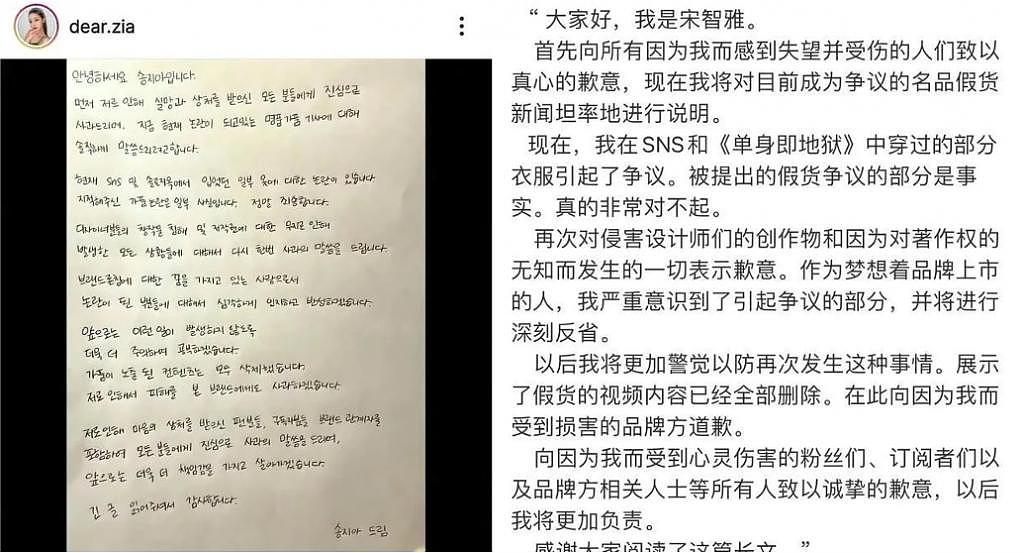 dear.zia
안녕하세요 송지아입니다.
먼저 저로 인해 실망과 상처를 받으신 모든 분들에게 진심으로
사과드리며, 지금 현재 논란이 되고있는 명품가품 기사에 대해
솔직하게 말씀드리려고합니다.
현재 SNS 및 솔로지옥에서 입었던 일부 옷에 대한 논란이 있습니다
지적해주신 가품논란은 일부 사실입니다. 정말 죄송합니다.
디자이너분들의 창작물 침해 및 저작권에 대한 무지로 인해
발생한 모든 상황들에 대해서 다시 한번 사과의 말씀을 드립니다.
브랜드론칭에 대한 꿈을 가지고 있는 사람으로서
논란이 된 부분들에 대해서 심각하게 인지하고 반성하겠습니다.
앞으로는 이런 일이 발생하지 않도록
더욱 더 주의하며 공부하겠습니다.
가품이 노출 된 컨텐츠는 모두 삭제했습니다.
저로 인해서 피해를 본 브랜드에게도 사과하겠습니다
저로인해 마음의 상처를 받으신 팬분들, 구독자분들 브랜드 관계자를
포함하여 모든분들에게 진심으로 사과의 말씀을 드리며,
앞으로는 더욱 더 책임감을 가지고 살아가겠습니다.
긴 글 읽어주셔서 감사합니다.
송지아 드림
“ 大家好，我是宋智雅。
首先向所有因为我而感到失望并受伤的人们致以
真心的歉意，现在我将对目前成为争议的名品假货
新闻坦率地进行说明。
现在，我在SNS和《单身即地狱》中穿过的部分
衣服引起了争议。被提出的假货争议的部分是事
实。真的非常对不起。
再次对侵害设计师们的创作物和因为对著作权的
无知而发生的一切表示歉意。作为梦想着品牌上市
的人，我严重意识到了引起争议的部分，并将进行
深刻反省。
以后我将更加警觉以防再次发生这种事情。展示
了假货的视频内容已经全部删除。在此向因为我而
受到损害的品牌方道歉。
向因为我而受到心灵伤害的粉丝们、订阅者们以
及品牌方相关人士等所有人致以诚挚的歉意，以后
我将更加负责。
感谢大家阅读了这篇长文。”